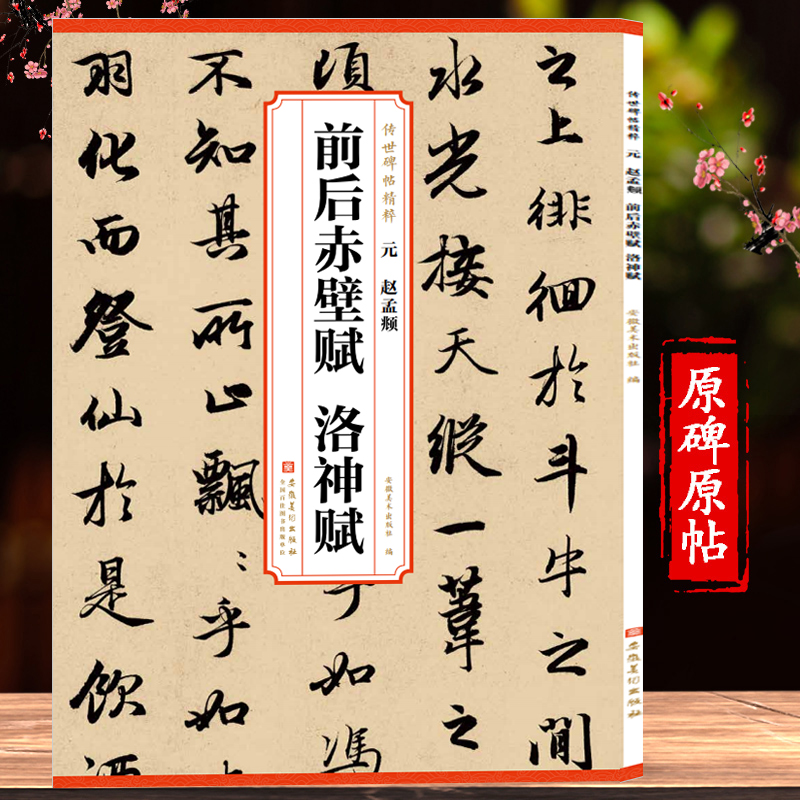 之上徘徊於斗牛之間
水光接天縱一葦之
乎如馮
不知其所止飄〻乎如
羽化而登仙於是飲酒
传世碑帖精粹 元 赵孟𫖯
前后赤壁赋 洛神赋
安徽美术出版社 编
安徽美术出版社
全国百佳图书出版单位
传世碑帖精粹 元 赵孟𫖯 前后赤壁赋 洛神赋 安徽美术出版社 编
安徽美术出版社
原碑原帖